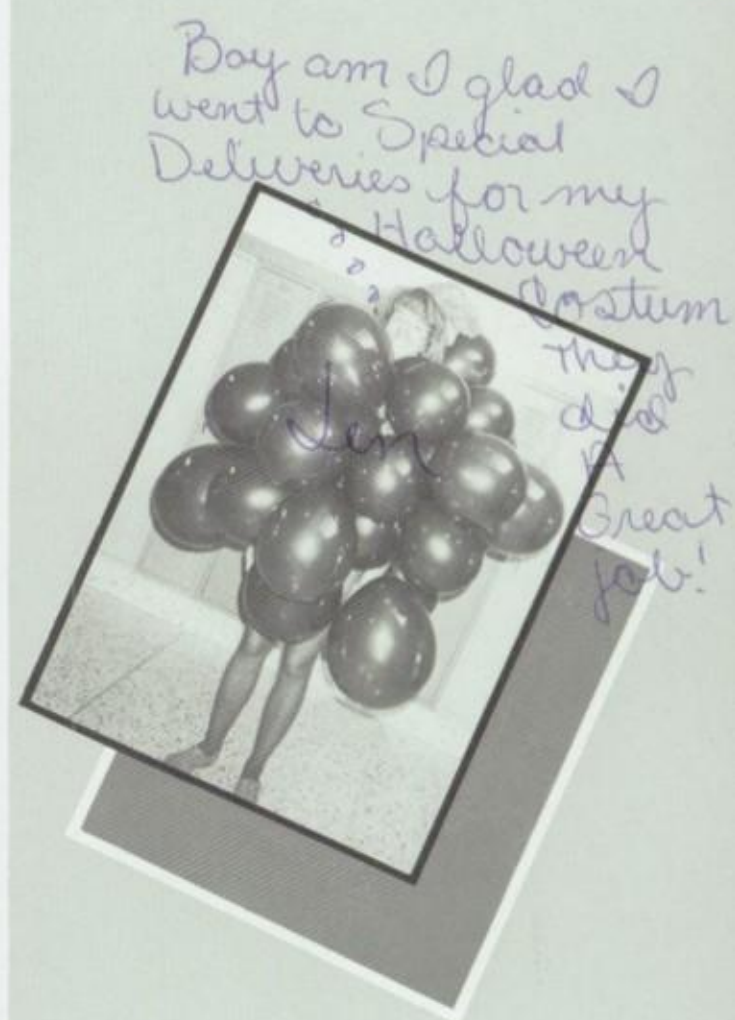 Boy am I glad I
went to Special
Deliveries for my
Halloween
Costum
they
did
A
Great
job!
Jen